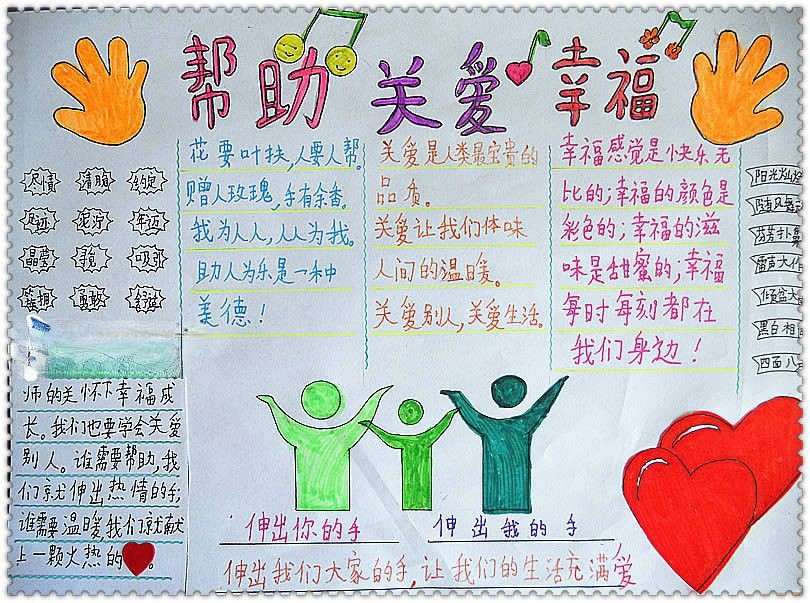 帮助 关爱 幸福
尽责 清脆 约定
足迹 泥泞 年迈
晶莹 寻觅 吸引
簇拥 勇敢
花要叶扶,人要人帮。
赠人玫瑰,手有余香。
我为人人,人人为我。
助人为乐是一种
美德!
关爱是人类最宝贵的
品质。
关爱让我们体味
人间的温暖。
关爱别人,关爱生活。
幸福感觉是快乐无
比的;幸福的颜色是
彩色的;幸福的滋
味是甜蜜的;幸福
每时每刻都在
我们身边!
阳光灿
雷声大作
倾盆大
黑白相
四面八
师的关怀下幸福成
长。我们也要学会关爱
别人。谁需要帮助,我
们就伸出热情的手;
谁需要温暖,我们就献
上一颗火热的 。
伸出你的手 伸出我的手
伸出我们大家的手,让我们的生活充满爱